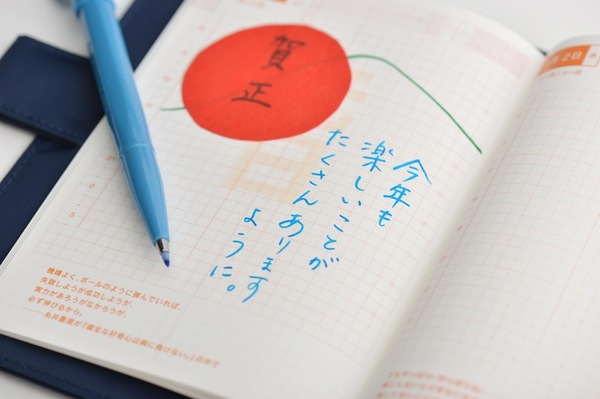 賀正
今年も
楽しいことが
たくさんあります
ように。
機嫌よく、ボールのように弾んでいれば、
失敗しようが成功しようが、
実力があろうがなかろうが、
必ず伸びるから。
2日